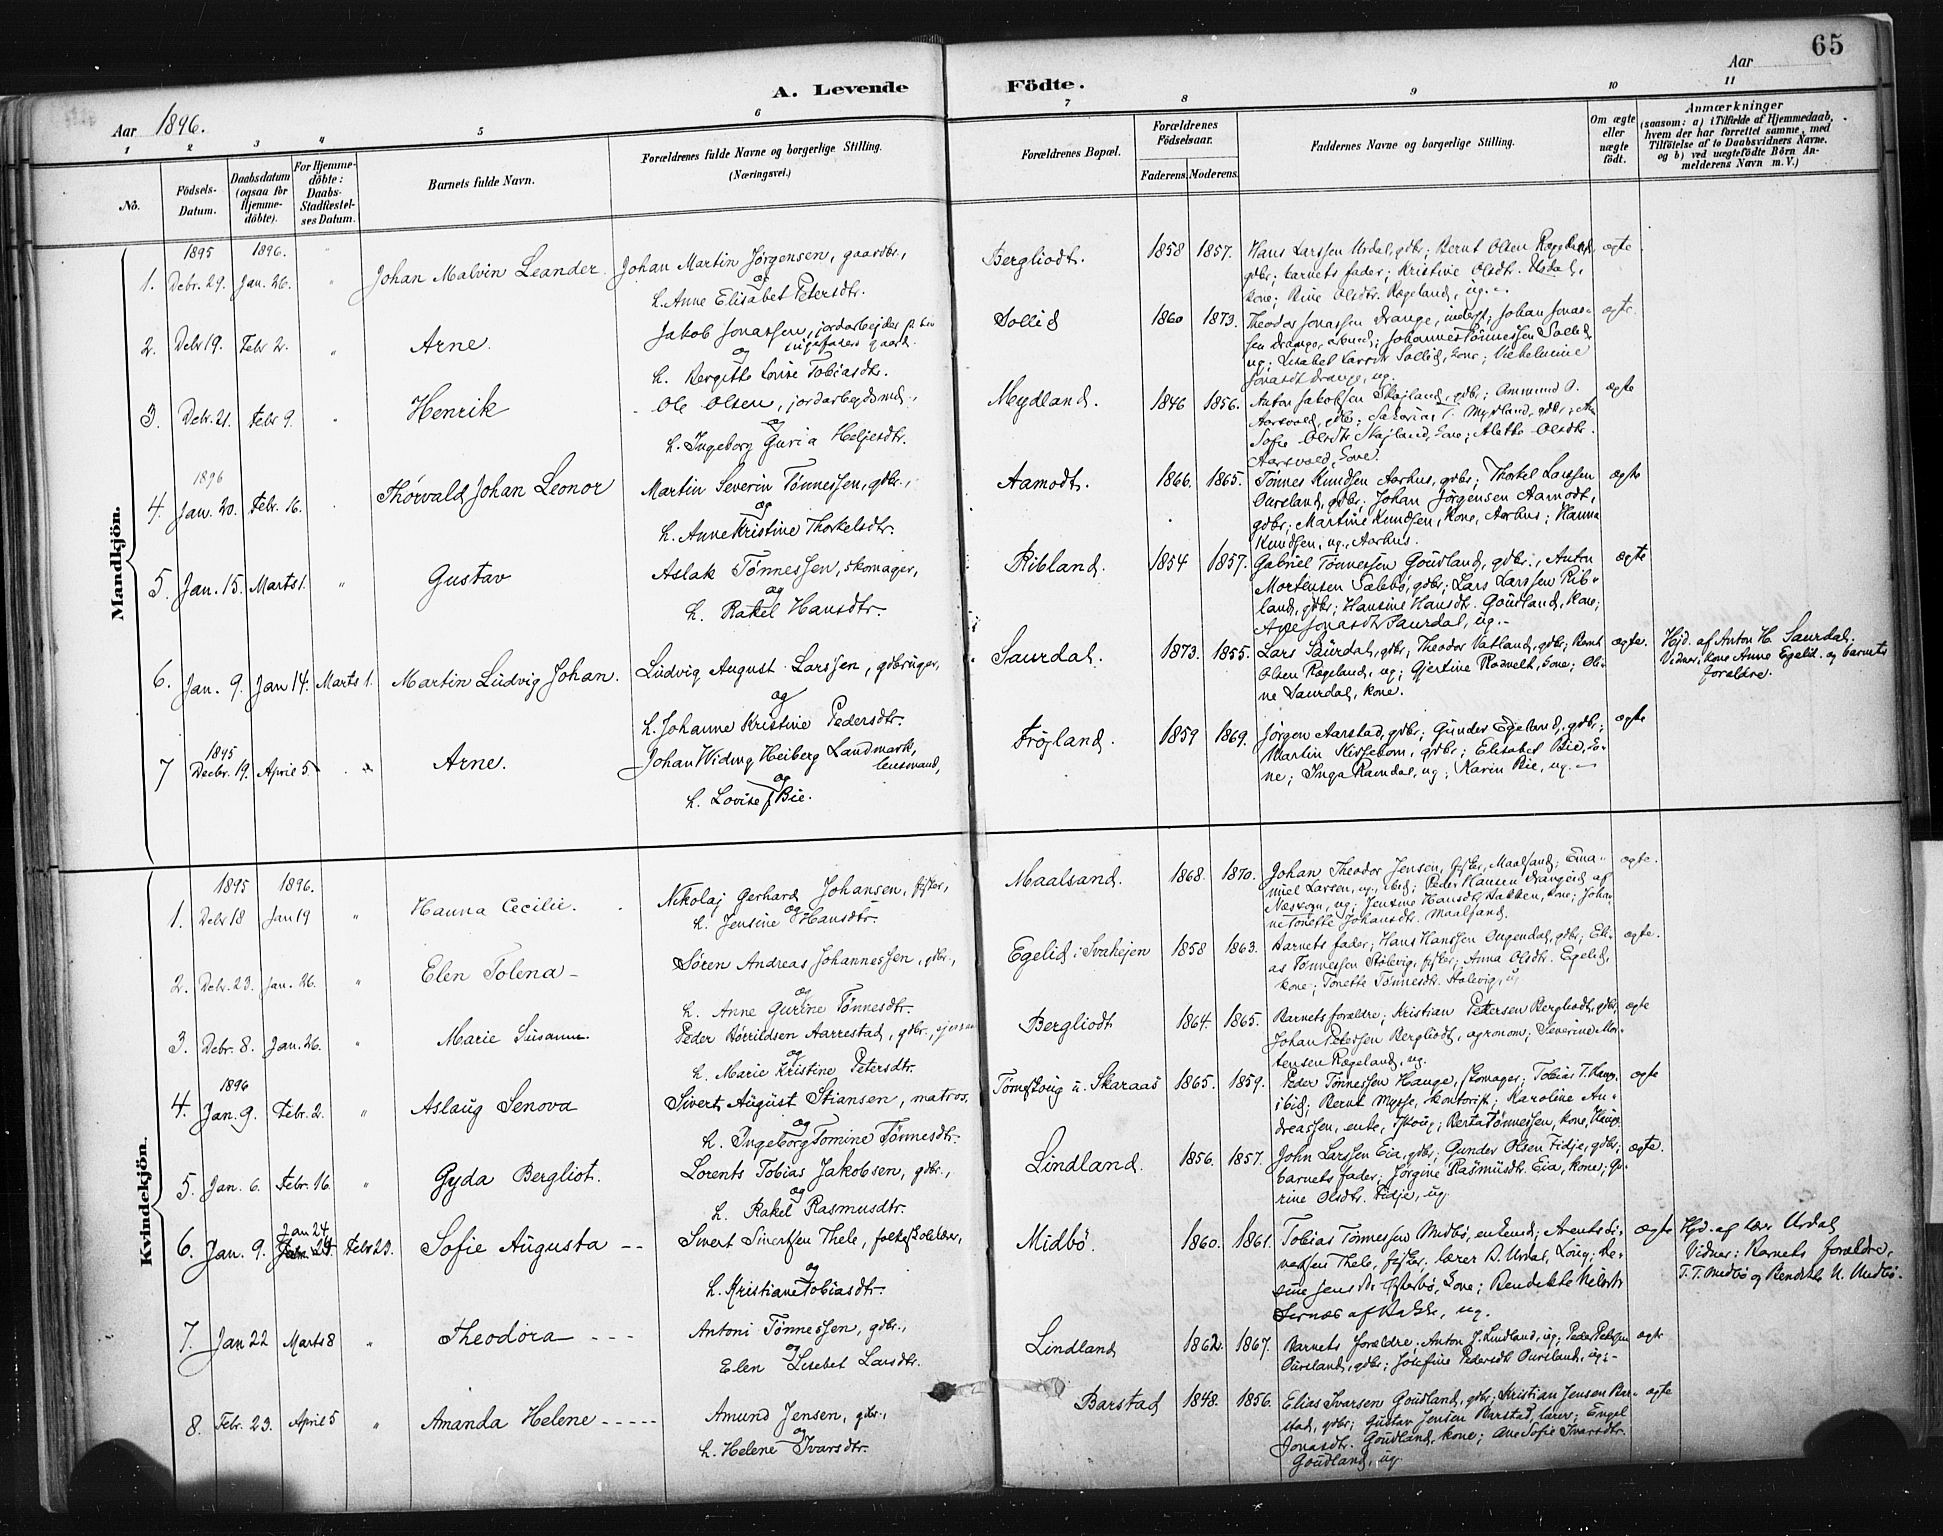 65
A. Levende Födte.
Aar 1896.
Aar
1 2 3 4 5 6 7 8 9 10 11
No.
Födsels-Datum.
Daabsdatum (ogsaa for Hjemme-döbte).
For Hjemme-döbte: Daabs-Stadfæstel-ses Datum.
Barnets fulde Navn.
Forældrenes fulde Navne og borgerlige Stilling. (Næringsvei.)
Forældrenes Bopæl.
Forældrenes Födselsaar.
Faderens. Moderens.
Faddernes Navne og borgerlige Stilling.
Om ægte eller uægte födt.
Anmærkninger
(saasom: a) i Tilfælde af Hjemmedaab,
hvem der har forrettet samme, med
Tilföielse af to Daabsvidners Navne,
og b) ved uægtefödte Börn An-
melderens Navn m. V.)
Mandkjön.
1895 1896.
1. Debr. 29. Jan. 26. " Johan Malvin Leander. Johan Martin Jörgensen, gaardbr.,
og
h. Anne Elisabet Petersdtr.
Bergliodt. 1858 1857. Hans Larssen Urdal, gdbr; Bernt Olsen Rægeland,
gdbr; barnets fader; Kristine Olsdt. Urdal,
kone; Rine Olsdtr. Rægeland, ug.
ægte
2. Debr 19. Febr 2. " Arne. Jakob Jonassen, jordarbejder
og
h. Bergitte Lovise Tobiasdtr.
Sollid 1860 1873. Theodor Jonassen Drange, Johan Jonas-
sen Drange, Johannes Tønnessen Sollid
ug; Lisabet Larsdtr Sollid, kone; Vilhelmine
Jonasdt Drange, ug.
ægte
3. Debr. 21. Febr 9. " Henrik Ole Olsen, jordarbejdsmd.,
og
h. Ingeborg Guria Heljesdtr.
Mydland. 1846 1856. Anton Jakobsen Skajland, gdbr; Ammund O.
Aarsvold, gdbr; Sakarias T. Mydland, gdbr; An
Sofie Olsdtr Skajland, kone; Alette Olsdtr.
Aarsvold, kone.
ægte
1896
4. Jan. 20. Febr. 16. Thorvald Johan Leonor Martin Severin Tønnessen, gdbr.,
og
h. Anne Kristine Thorkelsdtr.
Aamodt. 1866. 1865. Tønnes Knudsen Aarhus, gdbr; Thorkel Larssen
Oureland, gdbr; Johan Jörgensen Aamodt,
gdbr; Martine Knudsen, kone, Aarhus; Hanna
Knudsen, ug., Aarhus.
ægte
5. Jan. 15. Marts 1. " Gustav Aslak Tønnessen, skomager,
og
h. Rakel Hansdtr.
Ribland. 1854 1857. Gabriel Tønnessen Goudland, gdbr., Anton
Mortensen Sæbbø, gdbr; Lars Larssen Rib-
land, gdbr; Hansine Hansdt. Goudland, kone;
Ane Jonasdt Saurdal, ug.-
ægte
6. Jan. 9. Jan 14. Marts 1. Martin Ludvig Johan. Ludvig August Larssen, gdbruger,
og
h. Johanne Kristine Pedersdtr.
Saurdal. 1873. 1855. Lars Saurdal, gdbr; Theodor Vatland, gdbr; Bernt
Olsen Rægeland, ug; Gjertine Rodvelt, kone; Oli-
ne Saurdal, kone.
ægte. Hjd. af Anton H. Saurdal.
Vidner: kone Anne Egelid. og barnets
forældre.
1895
7 Decbr. 19. April 5 Arne. Johan Widing Heiberg Landmark,
lensmand,
og
h. Lovise f. Bie.
Frøjland. 1859 1869. Jörgen Aarstad, gdbr; Gunder Egeland, gdbr;
Martin Kirkebom, gdbr; Elisabet Bie, ko-
ne; Inga Ramdal, ug; Karin Bie, ug.-
ægte
Kvindekjön.
1895 1896.
1. Debr 18 Jan 19 " Hanna Cecilie. Nikolaj Gerhard Johansen, fisker,
og
h. Jensine Hansdtr.
Maalsand. 1868. 1870. Johan Theodor Jensen, fisker, Maalsand; Ema-
nuel Larsen, ug., ibid; Peder Hansen Drangeid af
Næsvogn, ug; Jensine Hansdt Bakken, kone; Johan
ne Tonette Johansdt. Maalsand.
ægte.
2. Debr. 23. Jan. 26. " Elen Tolena - Søren Andreas Johannessen, gdbr.,
og
h. Anne Gurine Tønnesdtr.
Egelid i Svaahejen 1858 1863. Barnets fader; Hans Hanssen Ougendal, gdbr; Eli-
as Tønnessen Stølevig, fisker; Anna Olsdt. Egelid,
kone; Tonette Tønnesdtr. Stølevig, ug
ægte.
3. Debr. 8. Jan. 26. " Marie Susanne. Peder Børrildsen Aarrestad, gdbr.,
og
h. Marie Kristine Petersdtr.
Bergliodt 1864. 1865. Barnets forældre; Kristian Petersen Bergliodt, gdbr
Johan Petersen Bergliodt, agronom; Severine Mor-
tensen Rægeland, ug.
ægte
1896
4. Jan. 9. Febr. 2. " Aslaug Senova Sivert August Stiansen, matros,
og
h. Ingeborg Tomine Tønnesdtr.
Tømsktoug u. Skaraas 1865. 1859. Peder Tønnessen Hauge, skomager; Tobias T. Haug.
ibid; Bernt Mysse, Karoline An-
dreassen, enke, Berta Tønnessen, kone, Hauge.
ægte
5. Jan. 6. Febr. 16. " Gyda Bergliot. Lorents Tobias Jakobsen, gdbr.,
og
h. Rakel Rasmusdtr.
Lindland. 1856. 1857. John Larssen Eia, gdbr; Gunder Olsen Fidje, gdbr;
barnets fader; Jørgine Rasmusdt. Eia, kone; Gu-
rine Olsdtr. Fidje, ug.
ægte.
6. Jan. 9. Jan 24. Febr 23. Sofie Augusta - - Sivert Sivertsen Thele, folkeskolelærer,
og
h. Kristiane Tobiasdtr.
Midbø. 1860. 1861. Tobias Tønnessen Midbø, enkemd; Arent Si-
vertsen Thele, fisker; lærer B. Urdal, Loug; Be-
sine Jensdt kone; Bendikte Nilsdt
af Bakke, ug.
ægte Hjd. af lærer Urdal
Vidner: Barnets forældre,
T. T. Midbø og Bendikte N. Midbø.
7. Jan 22 Marts 8 " Theodora - - - Antoni Tønnessen, gdbr.,
og
Elen Lisebet Larsdtr.
Lindland 1862. 1867. Barnets forældre; Anton J. Lindland, ug; Peder Petersen
Oureland, gdbr; Josefine Pedersdt Oureland, ug.-
ægte
8. Febr. 23. April 5 " Amanda Helene - - - - - Amund Jensen, gdbr.,
og
h. Helene Ivarsdtr.
Barstad 1848. 1856. Elias Ivarsen Goudland, gdbr; Kristian Jensen Bar-
stad, gdbr; Gustav Jensen Barstad, lærer; Engel
Jonasdt. Goudland, kone; Ane Sofie Ivarsdtr.
Goudland, ug.
ægte